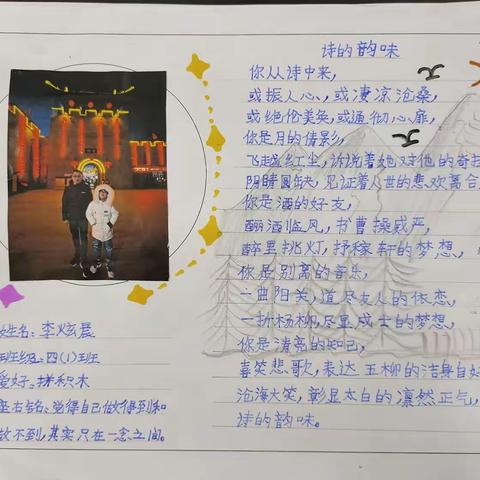 诗的韵味
你从诗中来,
或振人心,或凄凉沧桑,
或绝伦美奂,或通彻心扉,
你是月的倩影,
飞越红尘,诉说着她对他的奇
阴晴圆缺,见证着人世的悲欢离合
你是酒的好友,
酾酒临风,书曹操威严,
醉里挑灯,抒稼轩的梦想,
你是别离的音乐,
一曲阳关,道尽友人的依恋,
一折杨柳,尽显戍士的梦想,
你是清亮的知己,
喜笑悲歌,表达五柳的洁身自好
沧海大笑,彰显太白的凛然正气,
诗的韵味。
姓名:李炫晨
班级:四(1)班
爱好:拼积木
座右铭:觉得自己做得到和
做不到,其实只在一念之间。